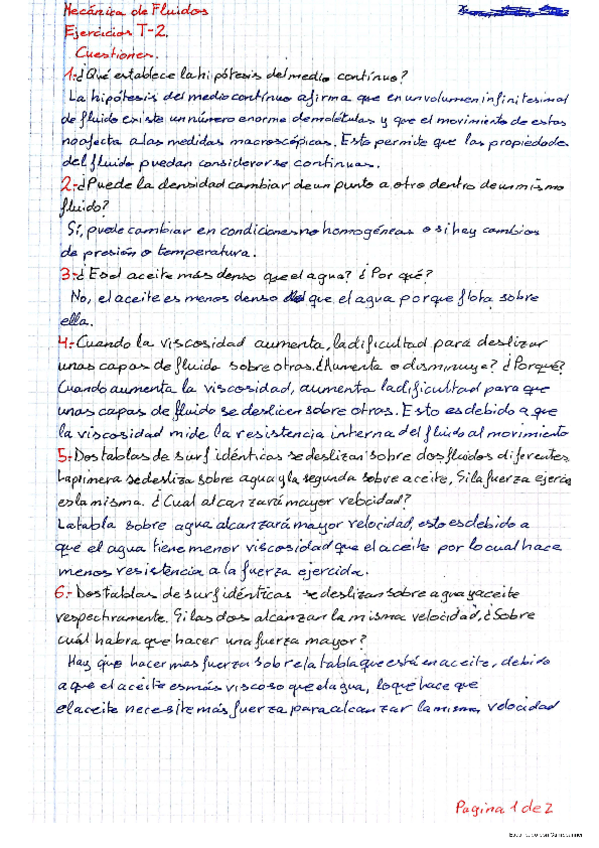 Mecánica de Fluidos
Ejercicios T-2.
Cuestiones.
1.-¿Qué establece la hipótesis del medio continuo?
La hipótesis del medio continuo afirma que en un volumen infinitesimal
de fluido existe un número enorme de moléculas y que el movimiento de estas
no afecta a las medidas macroscópicas. Esto permite que las propiedades
del fluido puedan considerarse continuas.
2.-¿Puede la densidad cambiar de un punto a otro dentro de un mismo
fluido?
Sí, puede cambiar en condiciones no homogéneas o si hay cambios
de presión o temperatura.
3.-¿Es el aceite más denso que el agua? ¿Por qué?
No, el aceite es menos denso que el agua porque flota sobre
ella.
4.-Cuando la viscosidad aumenta, la dificultad para deslizar
unas capas de fluido sobre otras. ¿Aumenta o disminuye? ¿Porqué?
Cuando aumenta la viscosidad, aumenta la dificultad para que
unas capas de fluido se deslicen sobre otras. Esto es debido a que
la viscosidad mide la resistencia interna del fluido al movimiento
5.-Dos tablas de surf idénticas se deslizan sobre dos fluidos diferentes
La primera se desliza sobre agua y la segunda sobre aceite, Si la fuerza ejerci
es la misma. ¿Cual alcanzará mayor velocidad?
La tabla sobre agua alcanzará mayor velocidad, esto es debido a
que el agua tiene menor viscosidad que el aceite por lo cual hace
menos resistencia a la fuerza ejercida.
6.- Dos tablas de surf idénticas se deslizan sobre agua y aceite
respectivamente. Si las dos alcanzan la misma velocidad, ¿Sobre
cuál habra que hacer una fuerza mayor?
Hay que hacer mas fuerza sobre la tabla que está en aceite, debido
a que el aceite es más viscoso que el agua, lo que hace que
el aceite necesite más fuerza para alcanzar la misma velocidad
Pagina 1 de 2